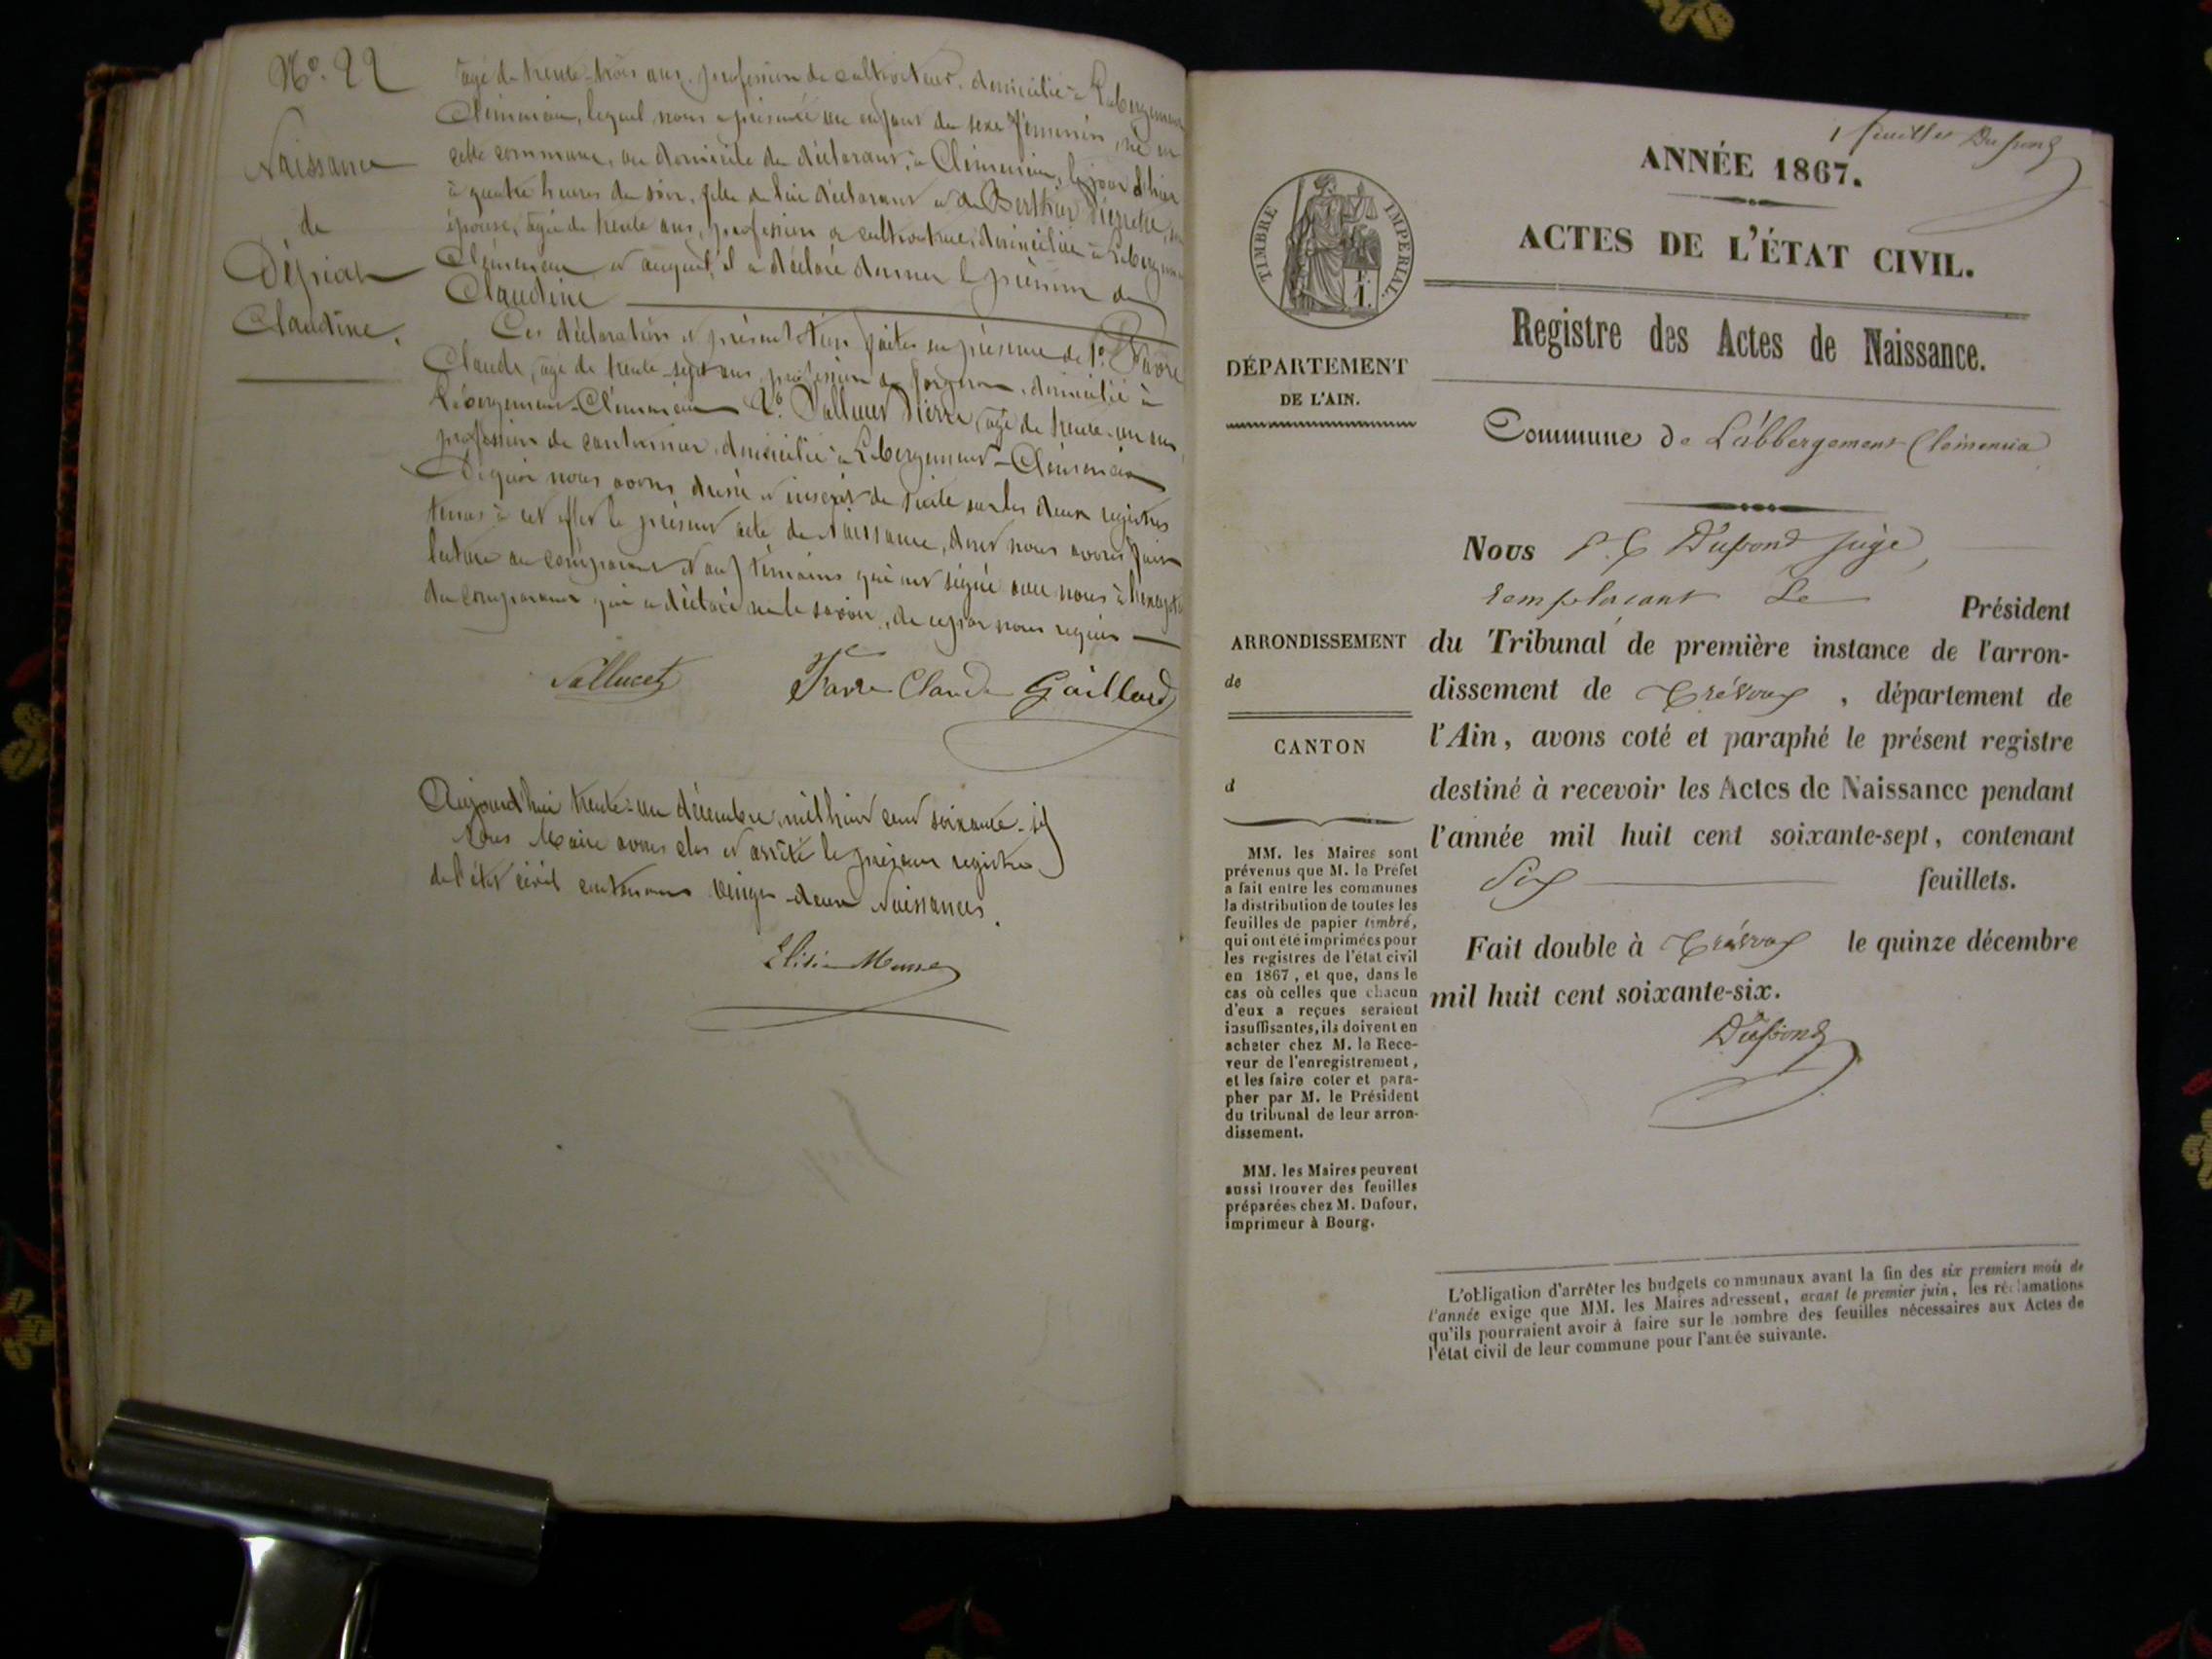 N°. 22
Naissance
de
Dépiat
Claudine.
âgé de trente-trois ans, profession de cultivateur, domicilié à
Clémencia, lequel nous a présenté un enfant du sexe féminin, né en
cette commune, au domicile du déclarant, à Clémencia, le jour d'hier
à quatre heures du soir, fille de lui déclarant et de Berthier
épouse, âgée de trente ans, profession de cultivatrice, domiciliée à
Clémencia et auquel il a déclaré donner le prénom de
Claudine
Ces déclaration et présentation faites en présence de 1°. Favre
Claude, âgé de trente-sept ans, profession de forgeron, domicilié à
Clémencia 2°. Pierre, âgé de trente-un ans
profession de cantonnier, domicilié à Clémencia
De quoi nous avons dressé et inscrit de suite sur les deux registres
tenus à cet effet le présent acte de Naissance, dont nous avons fait
lecture au comparant et aux témoins qui ont signé avec nous à
du comparant qui a déclaré ne le savoir, de ce par nous requis
Favre Claude Gaillard
Aujourd'hui trente-un décembre, mil huit cent soixante-six
Nous Maire avons clos et arrêté le présent registre
de l'état civil contenant vingt-deux Naissances.
1 feuillet Dupond
ANNÉE 1867.
ACTES DE L'ÉTAT CIVIL.
Registre des Actes de Naissance.
TIMBRE IMPERIAL.
DÉPARTEMENT
DE L'AIN.
Commune de L'abbergement Clemencia
Nous Dupond juge,
remplacant Le Président
ARRONDISSEMENT
de
CANTON
d
du Tribunal de première instance de l'arron-
dissement de Trévoux, département de
l'Ain, avons coté et paraphé le présent registre
destiné à recevoir les Actes de Naissance pendant
l'année mil huit cent soixante-sept, contenant
Six feuillets.
Fait double à Trévoux le quinze décembre
mil huit cent soixante-six.
Dupond
MM. les Maires sont
prévenus que M. le Préfet
a fait entre les communes
la distribution de toutes les
feuilles de papier timbré,
qui ont été imprimées pour
les registres de l'état civil
en 1867, et que, dans le
cas où celles que chacun
d'eux a reçues seraient
insuffisantes, ils doivent en
acheter chez M. le Rece-
veur de l'enregistrement,
et les faire coter et para-
pher par M. le Président
du tribunal de leur arron-
dissement.
MM. les Maires peuvent
aussi trouver des feuilles
préparées chez M. Dufour,
imprimeur à Bourg.
L'obligation d'arrêter les budgets communaux avant la fin des six premiers mois de
l'année exige que MM. les Maires adressent, avant le premier juin, les réclamations
qu'ils pourraient avoir à faire sur le nombre des feuilles nécessaires aux Actes de
l'état civil de leur commune pour l'année suivante.